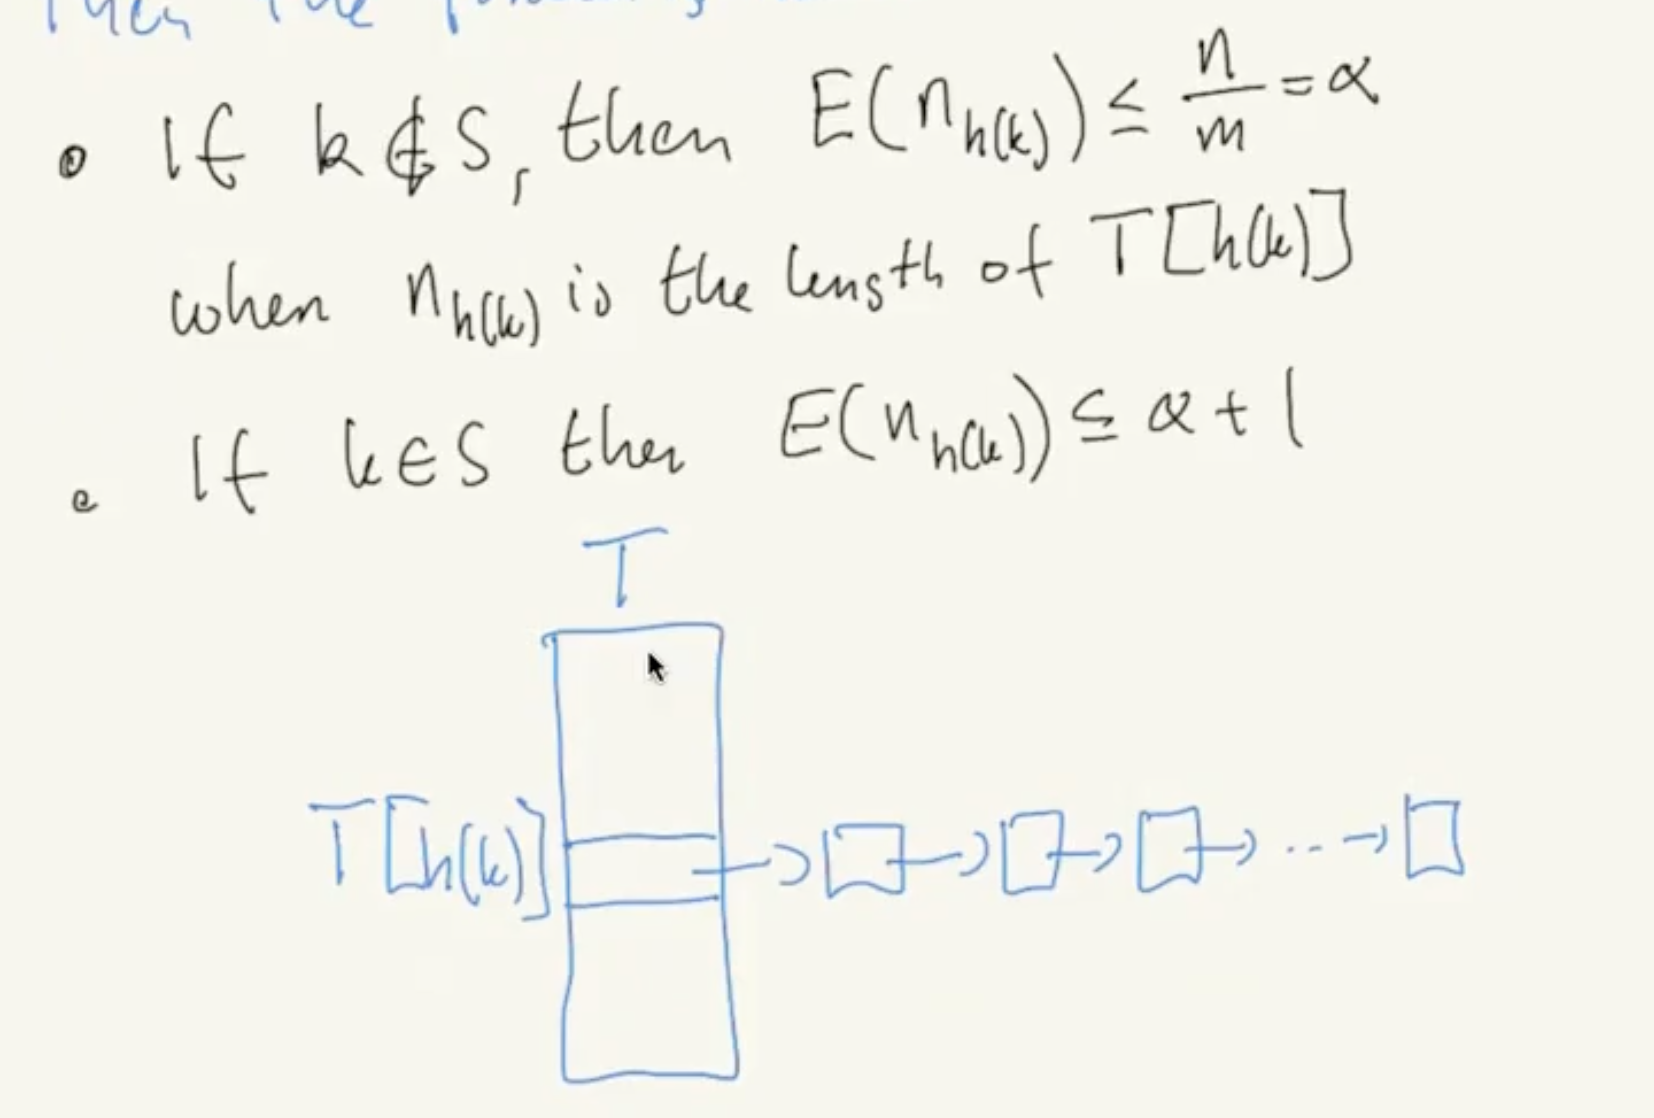 Then the
• If k ∉ S, then E(n_{h(k)}) ≤ n/m = α
when n_{h(k)} is the length of T[h(k)]
• If k ∈ S then E(n_{h(k)}) ≤ α + 1
T
T[h(k)] ...